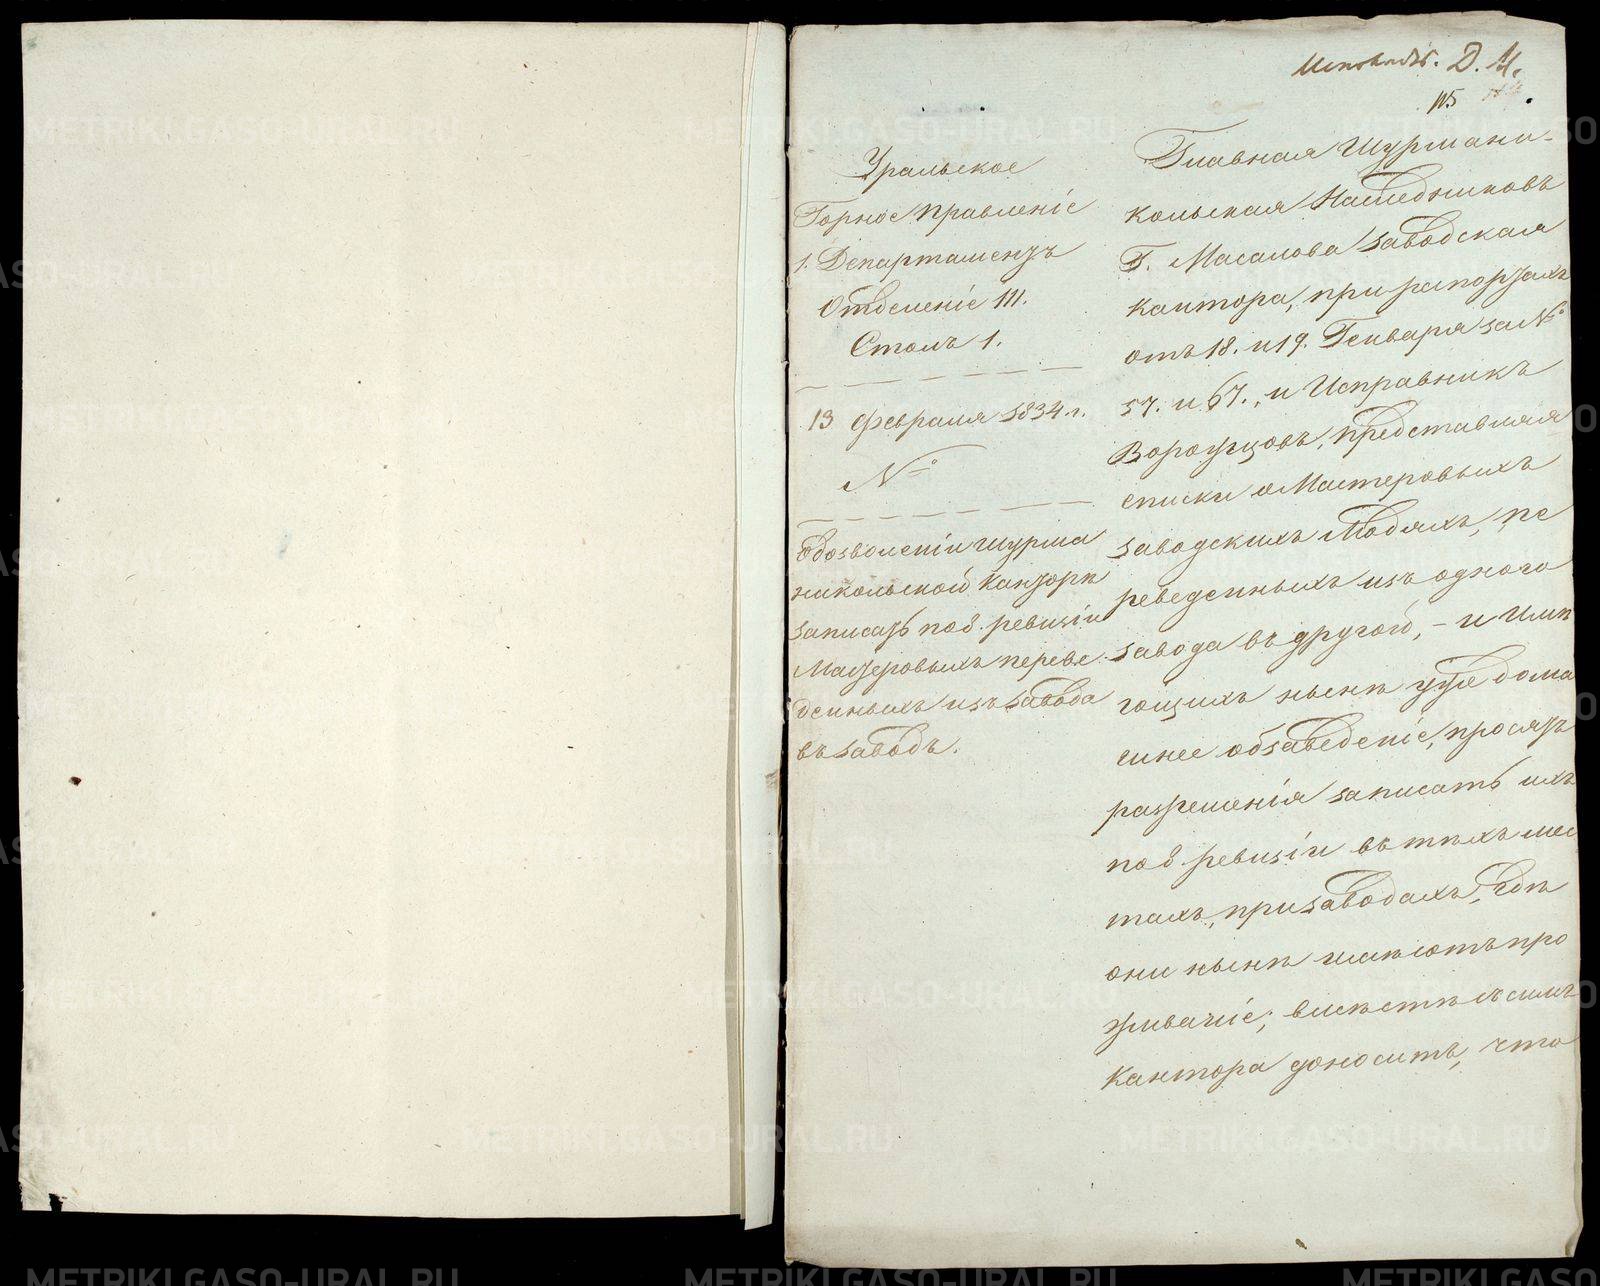 Исповѣдь. Д. М.
115
Уральское
Горное Правленіе
1. Департаментъ
Отделеніе III.
Столъ 1.
13 февраля 1834 г.
№
О дозволеніи шурма
никольской Канторѣ
записать по 8. ревизіи
Мастеровыхъ переве
денныхъ изъ завода
въ заводъ.
Главная Шурмани-
кольская Наследниковъ
Г. Масалова заводская
кантора, при рапортахъ
отъ 18. и 19. Генваря за №
57. и 67., и Исправникъ
Воротцовъ, представляя
списки о Мастеровыхъ
заводскихъ Людяхъ, пе
реведенныхъ изъ одного
завода въ другой, – и имѣ
ющихъ нынѣ уже дома
шнее обзаведеніе, просятъ
разрешенія записать ихъ
по 8. ревизіи въ тѣхъ мес
тахъ, при заводахъ, гдѣ
они нынѣ имѣютъ про
живаніе; вместѣ съ симъ
Кантора доноситъ, что
METRIKI.GASO-URAL.RU